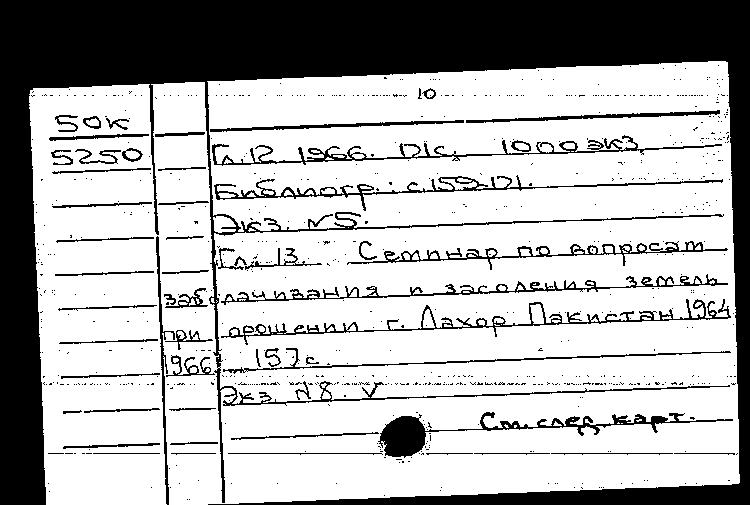 10
50к
5250 Гл.12 1966. 171с. 1000 экз.
Библиогр.: с.159-171.
Экз. N5.
Гл. 13. Семинар по вопросам
заболачивания и засоления земель
при орошении г. Лахор. Пакистан 1964
1966 157с.
Экз. N8. V
См. след. карт.